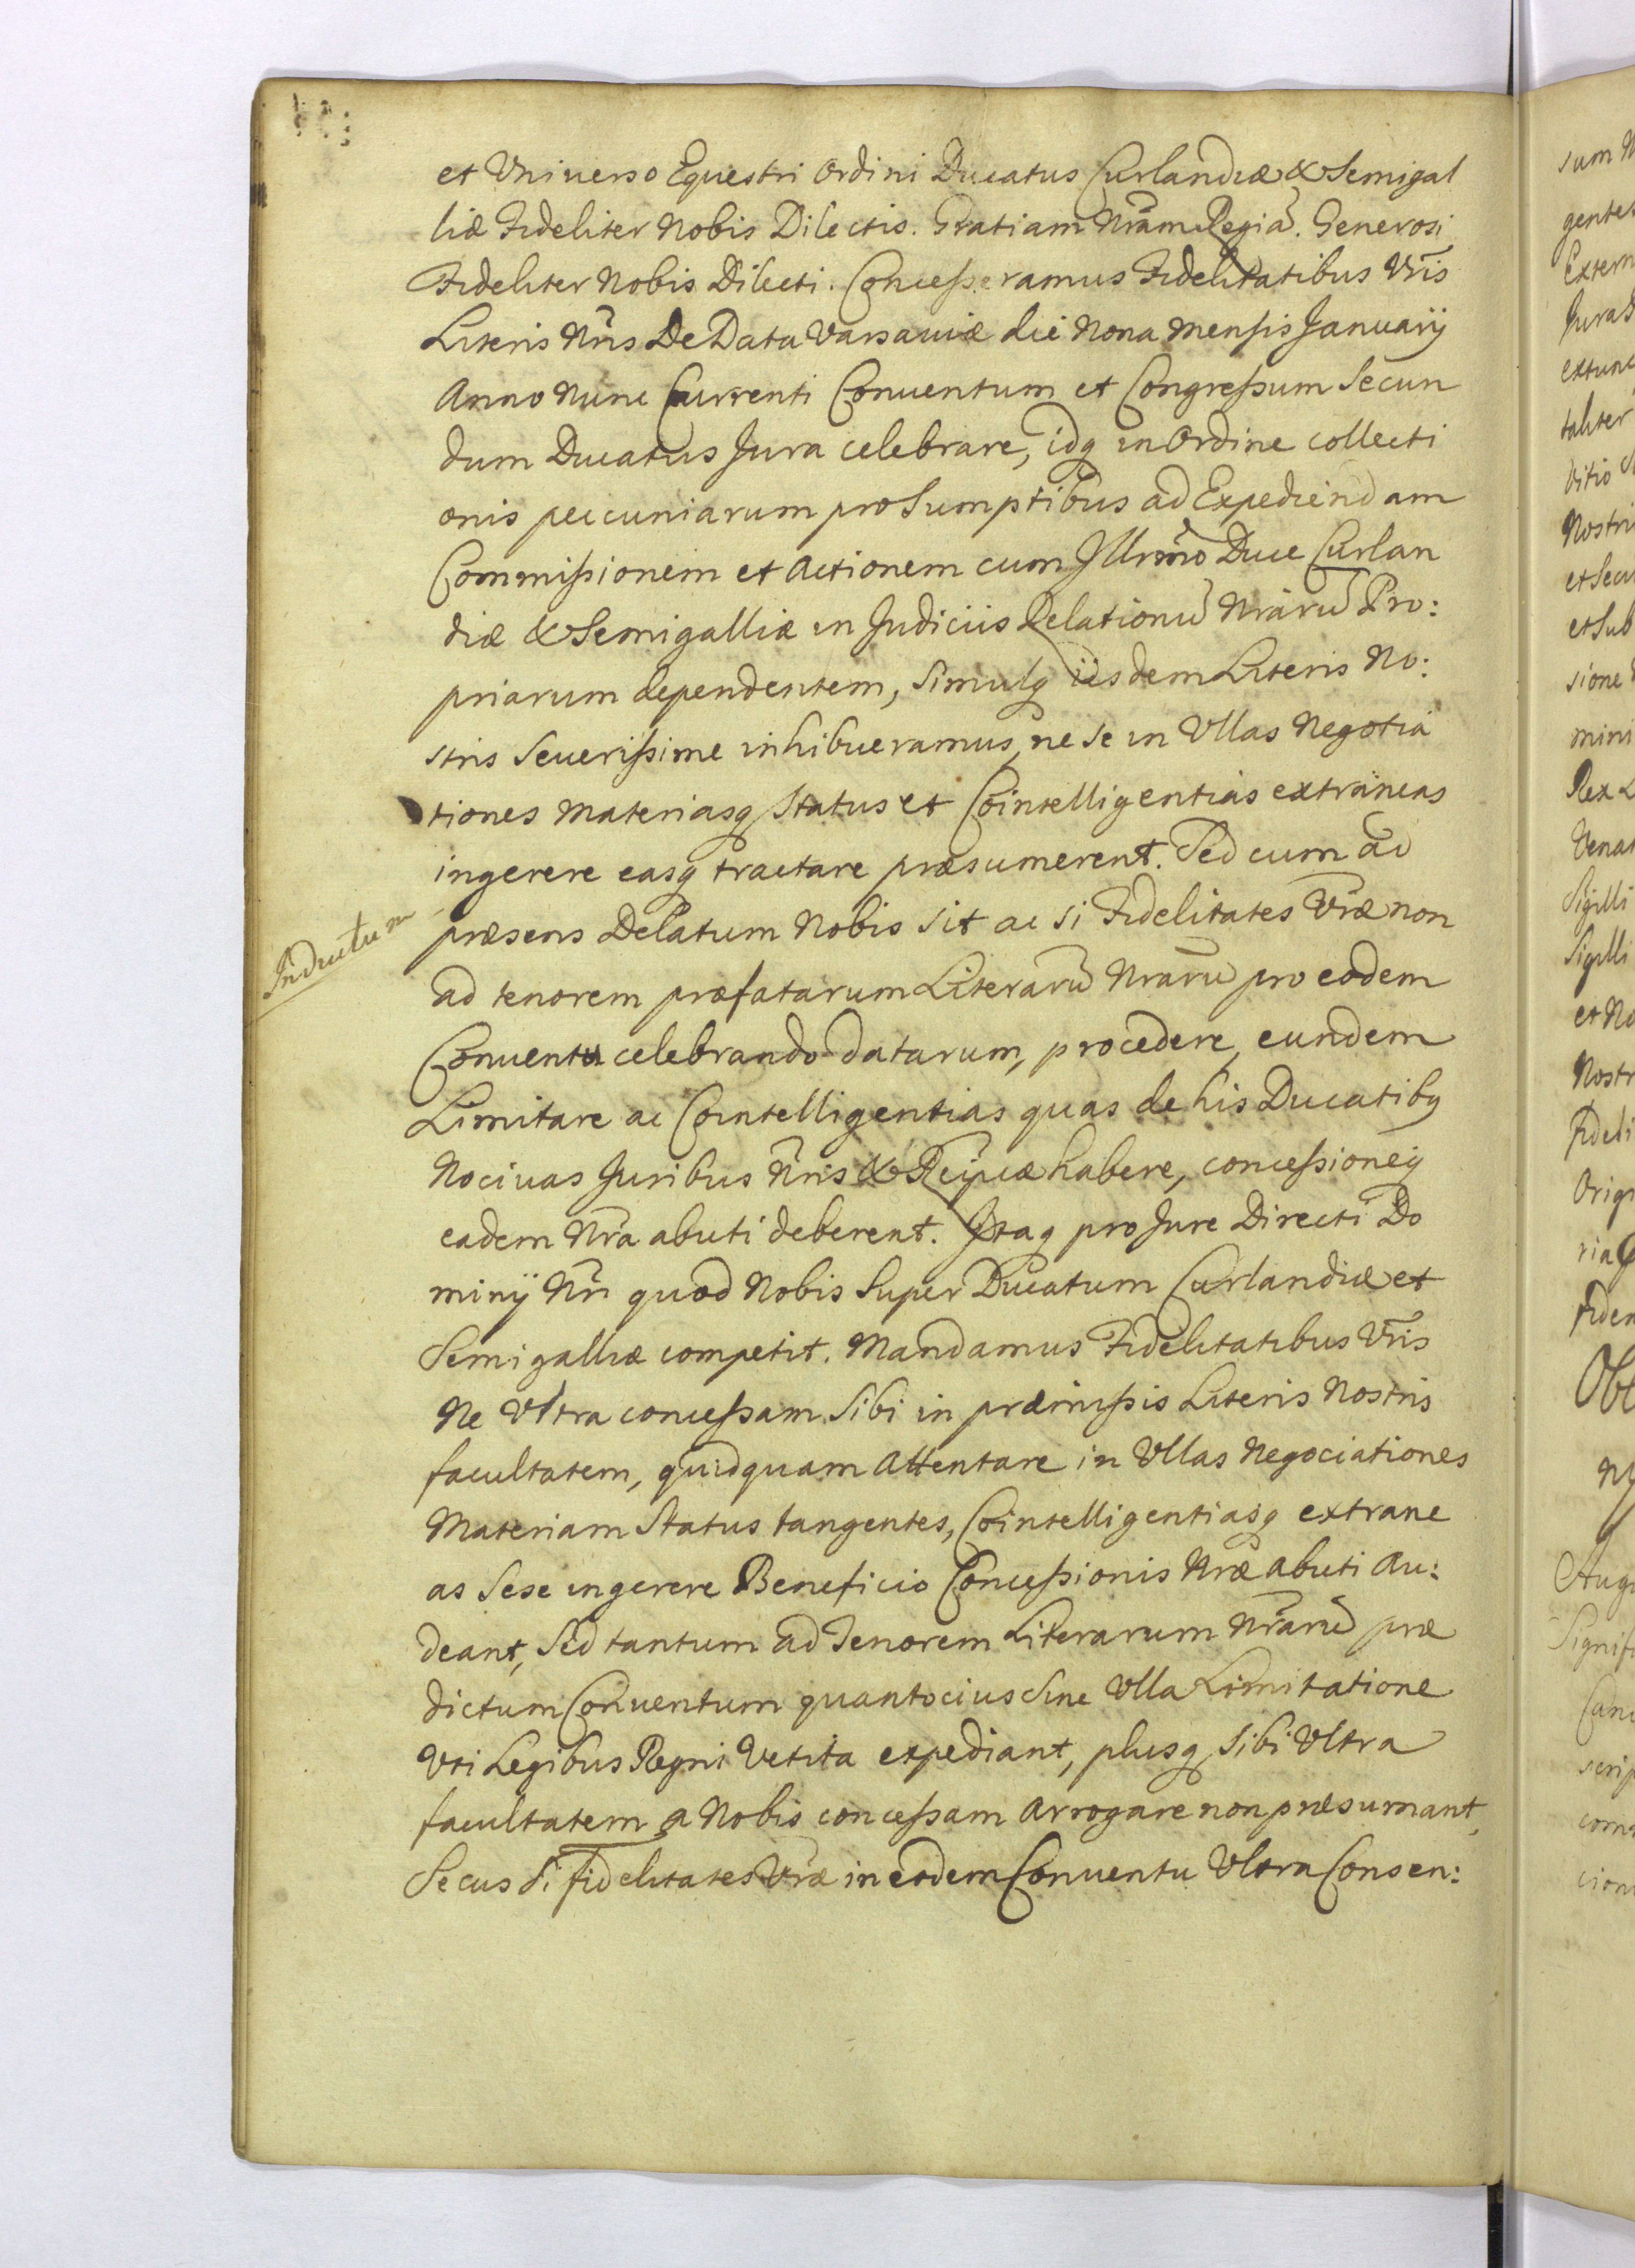 et Vniuerso Equestri Ordini Ducatus Curlandiæ & Semigal
liæ Fideliter Nobis Dilectis. Gratiam Nram Regiã. Generosi
Fideliter Nobis Dilecti. Concesseramus Fidelitatibus Vris
Literis Nris De Data Varsauiæ die Nona Mensis Januarij
Anno Nunc Currenti Conuentum et Congressum Secun
dum Ducatus Jura celebrare, idq in Ordine collecti
onis peicuniarum pro Sumptibus ad Expediendam
Commissionem et Actionem cum Jllrmo Duce Curlan
diæ & Semigalliæ in Judiciis Relationũ Nrarũ Pro:
priarum dependentem, Simulq iisdem Literis No:
stris Seuerissime inhibueramus, ne se in Vllas Negotia
tiones Materiasq Status et Cointelligentias extraneas
ingerere easq tractare præsumerent. Sed cum ad
præsens Delatum Nobis sit ac si Fidelitates Vræ non
Inductum
ad tenorem præfatarum Literarũ Nrarũ pro eodem
Conuentu celebrando datarum, procedere, eundem
Limitare ac Cointelligentias quas de his Ducatibq
Nociuas Juribus Nris & Reipcæ habere, concessioneq
eadem Nra abuti deberent. Jtaq pro Jure Directi Do
minij Nri quod Nobis Super Ducatum Curlandiæ et
Semigalliæ competit. Mandamus Fidelitatibus Vris
Ne Vltra concessam Sibi in præmissis Literis Nostris
facultatem, quidquam Attentare in Vllas Negociationes
Materiam Status tangentes, Cointelligentiasq extrane
as Sese ingerere Beneficio Concessionis Nræ abuti Au:
deant, Sed tantum ad Tenorem Literarum Nrarũ præ
dictum Conuentum quantocius Sine Vlla Limitatione
Vti Legibus Regni Vetita expediant, plusq Sibi Vltra
facultatem a Nobis concessam Arrogare non præsumant,
Secus Si fidelitates Vræ in eodem Conuentu Vltra Consen: